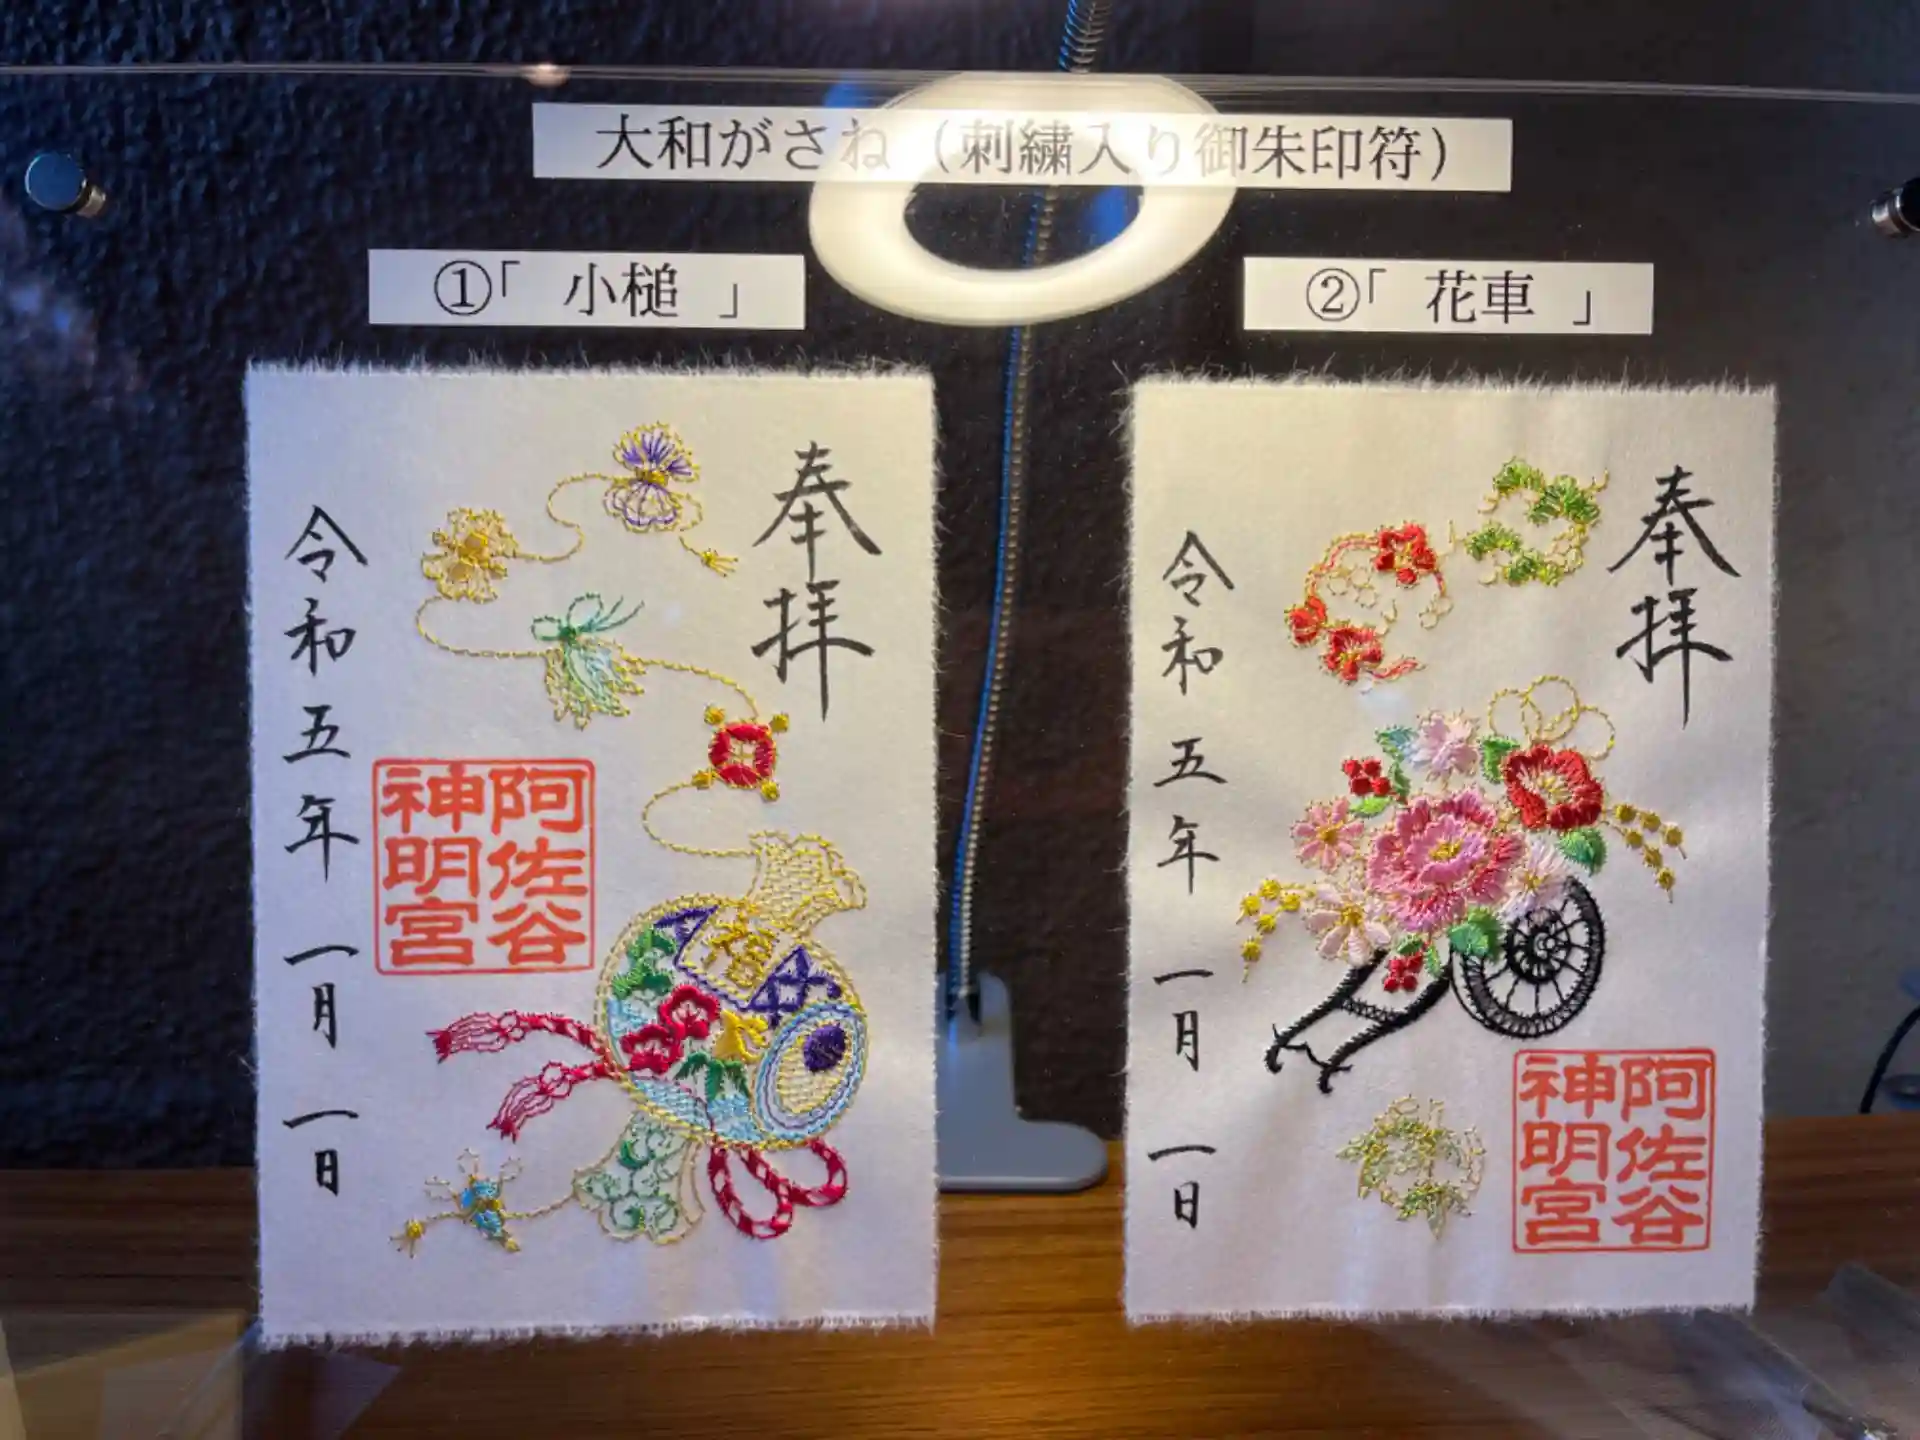 大和がさね（刺繍入り御朱印符）
①「 小槌 」
奉拝
福
阿佐谷
神明宮
令和五年一月一日
②「 花車 」
奉拝
阿佐谷
神明宮
令和五年一月一日